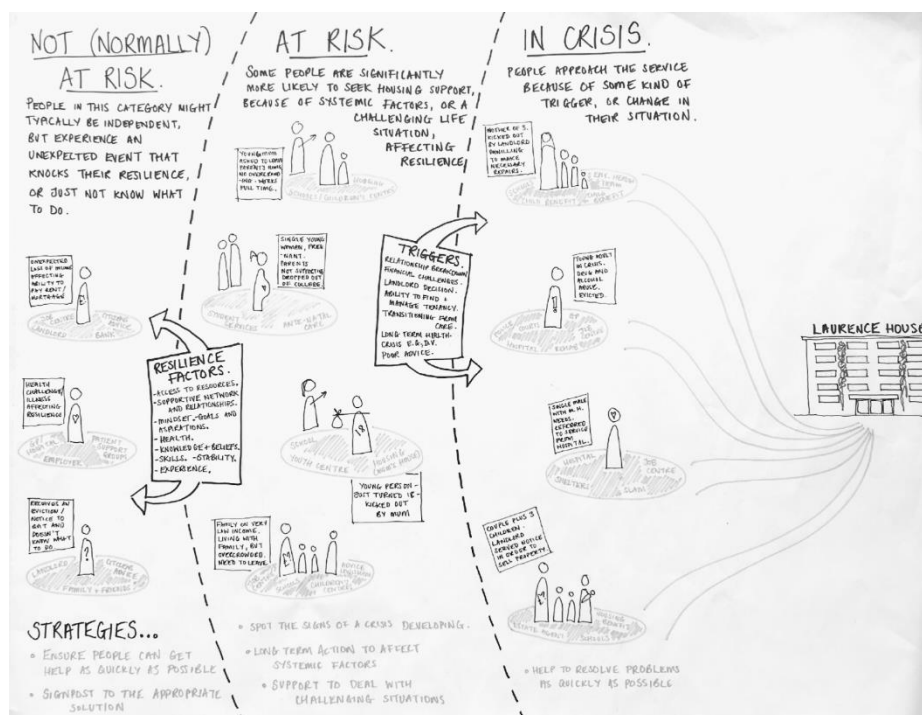 NOT (NORMALLY)
AT RISK.
PEOPLE IN THIS CATEGORY MIGHT
TYPICALLY BE INDEPENDENT,
BUT EXPERIENCE AN
UNEXPECTED EVENT THAT
KNOCKS THEIR RESILIENCE,
OR JUST NOT KNOW WHAT
TO DO.
UNEXPECTED
LOSS OF INCOME
AFFECTING
ABILITY TO
PAY RENT/
MORTGAGE
JOB CENTRE
CITIZENS ADVICE
LANDLORD
BANK
HEALTH
CHALLENGE/
ILLNESS
AFFECTING
RESILIENCE
GP/
HOSPITAL
PATIENT
SUPPORT
GROUPS
EMPLOYER
RECEIVES AN
EVICTION/
NOTICE TO
QUIT AND
DOESN'T
KNOW WHAT
TO DO.
?
LANDLORD
CITIZENS
ADVICE
FAMILY + FRIENDS
RESILIENCE
FACTORS.
-ACCESS TO RESOURCES.
-SUPPORTIVE NETWORK
AND RELATIONSHIPS.
-MINDSET -GOALS AND
ASPIRATIONS.
-HEALTH.
-KNOWLEDGE + BELIEFS.
-SKILLS. -STABILITY.
-EXPERIENCE.
STRATEGIES...
• ENSURE PEOPLE CAN GET
HELP AS QUICKLY AS POSSIBLE
• SIGNPOST TO THE APPROPRIATE
SOLUTION
AT RISK.
SOME PEOPLE ARE SIGNIFICANTLY
MORE LIKELY TO SEEK HOUSING SUPPORT,
BECAUSE OF SYSTEMIC FACTORS, OR A
CHALLENGING LIFE
SITUATION,
AFFECTING
RESILIENCE
YOUNG MUM
ASKED TO LEAVE
PARENTS HOME
FULL TIME.
SCHOOL/CHILDREN'S CENTRE
SINGLE YOUNG
WOMAN, PREG-
NANT.
PARENTS
NOT SUPPORTIVE
DROPPED OUT
OF COLLEGE.
STUDENT
SERVICES
ANTE-NATAL
CARE
SCHOOL
YOUTH CENTRE
HOUSING
18
YOUNG PERSON -
JUST TURNED 18 -
KICKED OUT
BY MUM
FAMILY ON VERY
LOW INCOME,
LIVING WITH
FAMILY, BUT
OVERCROWDED.
NEED TO LEAVE.
CHILDREN'S
CENTRE
• SPOT THE SIGNS OF A CRISIS DEVELOPING.
• LONG TERM ACTION TO AFFECT
SYSTEMIC FACTORS
• SUPPORT TO DEAL WITH
CHALLENGING SITUATIONS
TRIGGERS.
RELATIONSHIP BREAKDOWN
FINANCIAL CHALLENGES.
LANDLORD DECISION.
ABILITY TO FIND +
MANAGE TENANCY.
TRANSITIONING FROM
CARE.
LONG TERM HEALTH.
CRISIS E.G. D.V.
POOR ADVICE.
IN CRISIS.
PEOPLE APPROACH THE SERVICE
BECAUSE OF SOME KIND OF
TRIGGER, OR CHANGE IN
THEIR SITUATION.
MOTHER OF 3.
KICKED OUT
BY LANDLORD
UNWILLING
TO MAKE
NECESSARY
REPAIRS.
BENEFIT
YOUNG ADULT
IN CRISIS.
DRUG AND
ALCOHOL
ABUSE.
EVICTED.
HOSPITAL
SINGLE MALE
WITH M.H.
NEEDS.
REFERRED TO
SERVICE
FROM
HOSPITAL.
HOSPITAL
JOB
CENTRE
SHELTERS
SLAM
COUPLE PLUS 3
CHILDREN.
LANDLORD
SERVED NOTICE
IN ORDER TO
SELL PROPERTY.
• HELP TO RESOLVE PROBLEMS
AS QUICKLY AS POSSIBLE
LAURENCE HOUSE